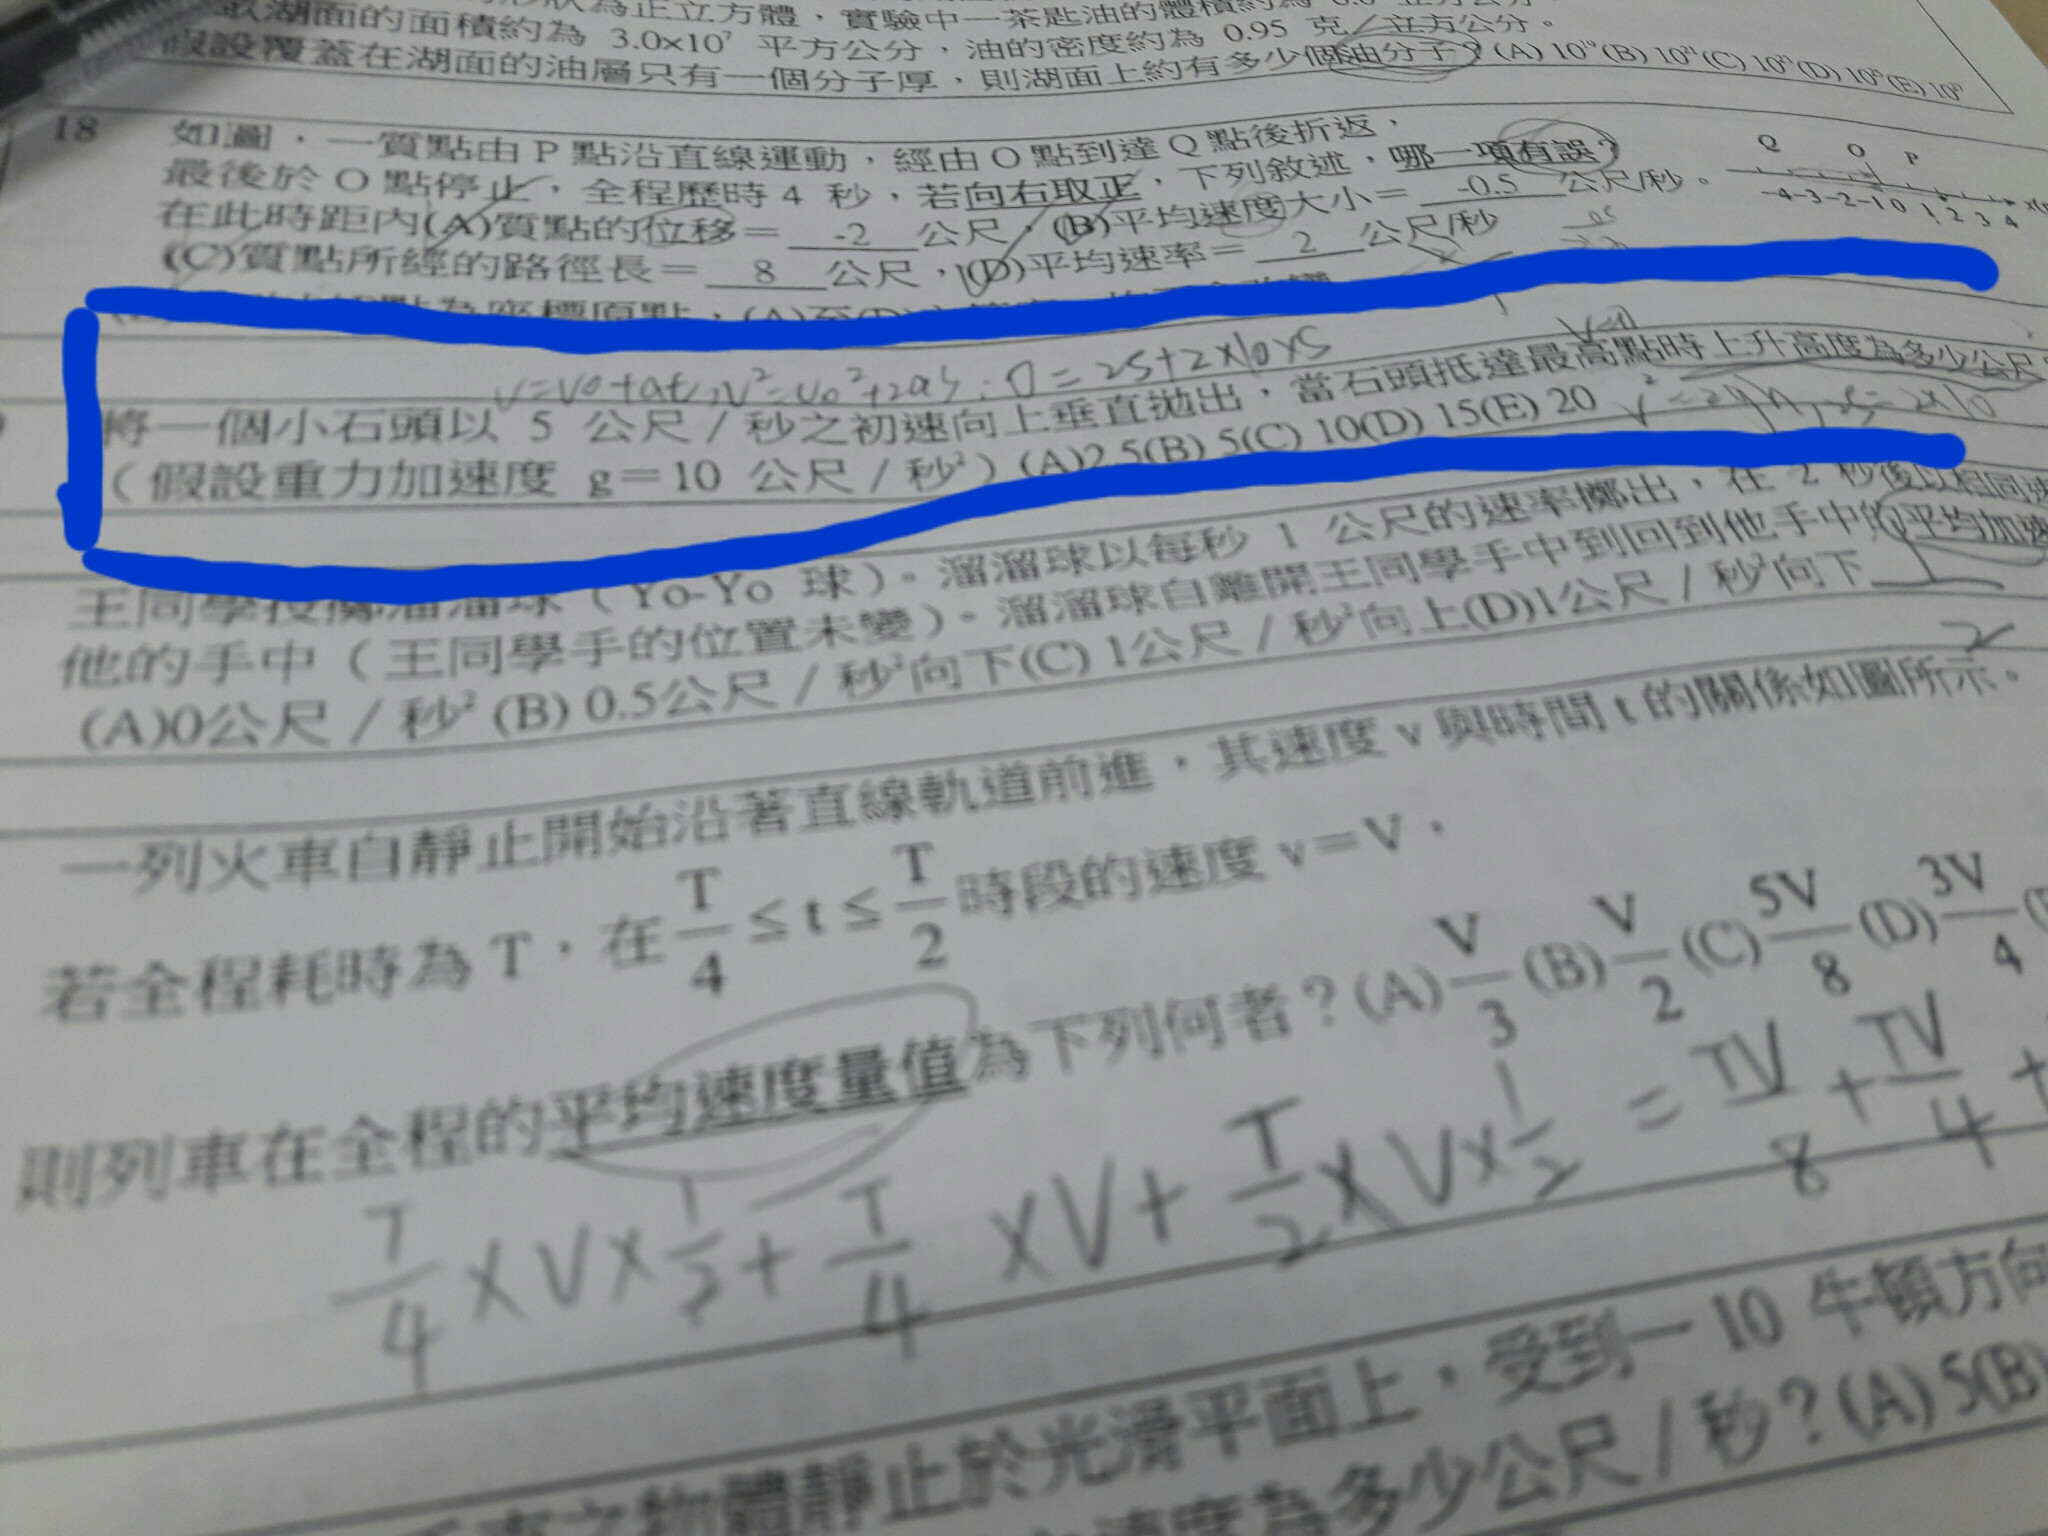 實驗中一茶匙油的體積約為
畝湖面的面積約為 3.0×10⁷ 平方公分，油的密度約為 0.95 克／立方公分。
假設覆蓋在湖面的油層只有一個分子厚，則湖面上約有多少個油分子？(A)
18 如圖，一質點由 P 點沿直線運動，經由 O 點到達 Q 點後折返，
最後於 O 點停止，全程歷時 4 秒，若向右取正，下列敘述，哪一項有誤？
在此時距內(A)質點的位移＝ -2 公尺，(B)平均速度大小＝ -0.5 公尺/秒。
(C)質點所經的路徑長＝ 8 公尺，(D)平均速率＝ 2 公尺/秒
Q O P
-4 -3 -2 -1 0 1 2 3 4
點為座標原點，(A)至(D)
V=V0+at, V²=V0²+2as : 0=25+2×10×S
V=0
將一個小石頭以 5 公尺／秒之初速向上垂直拋出，當石頭抵達最高點時上升高度為多少公尺
（假設重力加速度 g＝10 公尺／秒²）(A)2.5(B) 5(C) 10(D) 15(E) 20
王同學投擲溜溜球（Yo-Yo 球）。溜溜球以每秒 1 公尺的速率擲出，在 2 秒後以相同速
他的手中（王同學手的位置未變）。溜溜球自離開王同學手中到回到他手中的平均加速
(A)0公尺／秒² (B) 0.5公尺／秒²向下(C) 1公尺／秒²向上(D)1公尺／秒²向下
一列火車自靜止開始沿著直線軌道前進，其速度 v 與時間 t 的關係如圖所示。
若全程耗時為 T，在 T/4 ≤ t ≤ T/2 時段的速度 v＝V，
則列車在全程的平均速度量值為下列何者？(A) V/3 (B) V/2 (C) 5V/8 (D) 3V/4
T/4 × V × 1/2 + T/4 × V + T/2 × V × 1/2 = TV/8 + TV/4 +
之物體靜止於光滑平面上，受到一 10 牛頓方向
速度為多少公尺／秒？(A) 5(B)